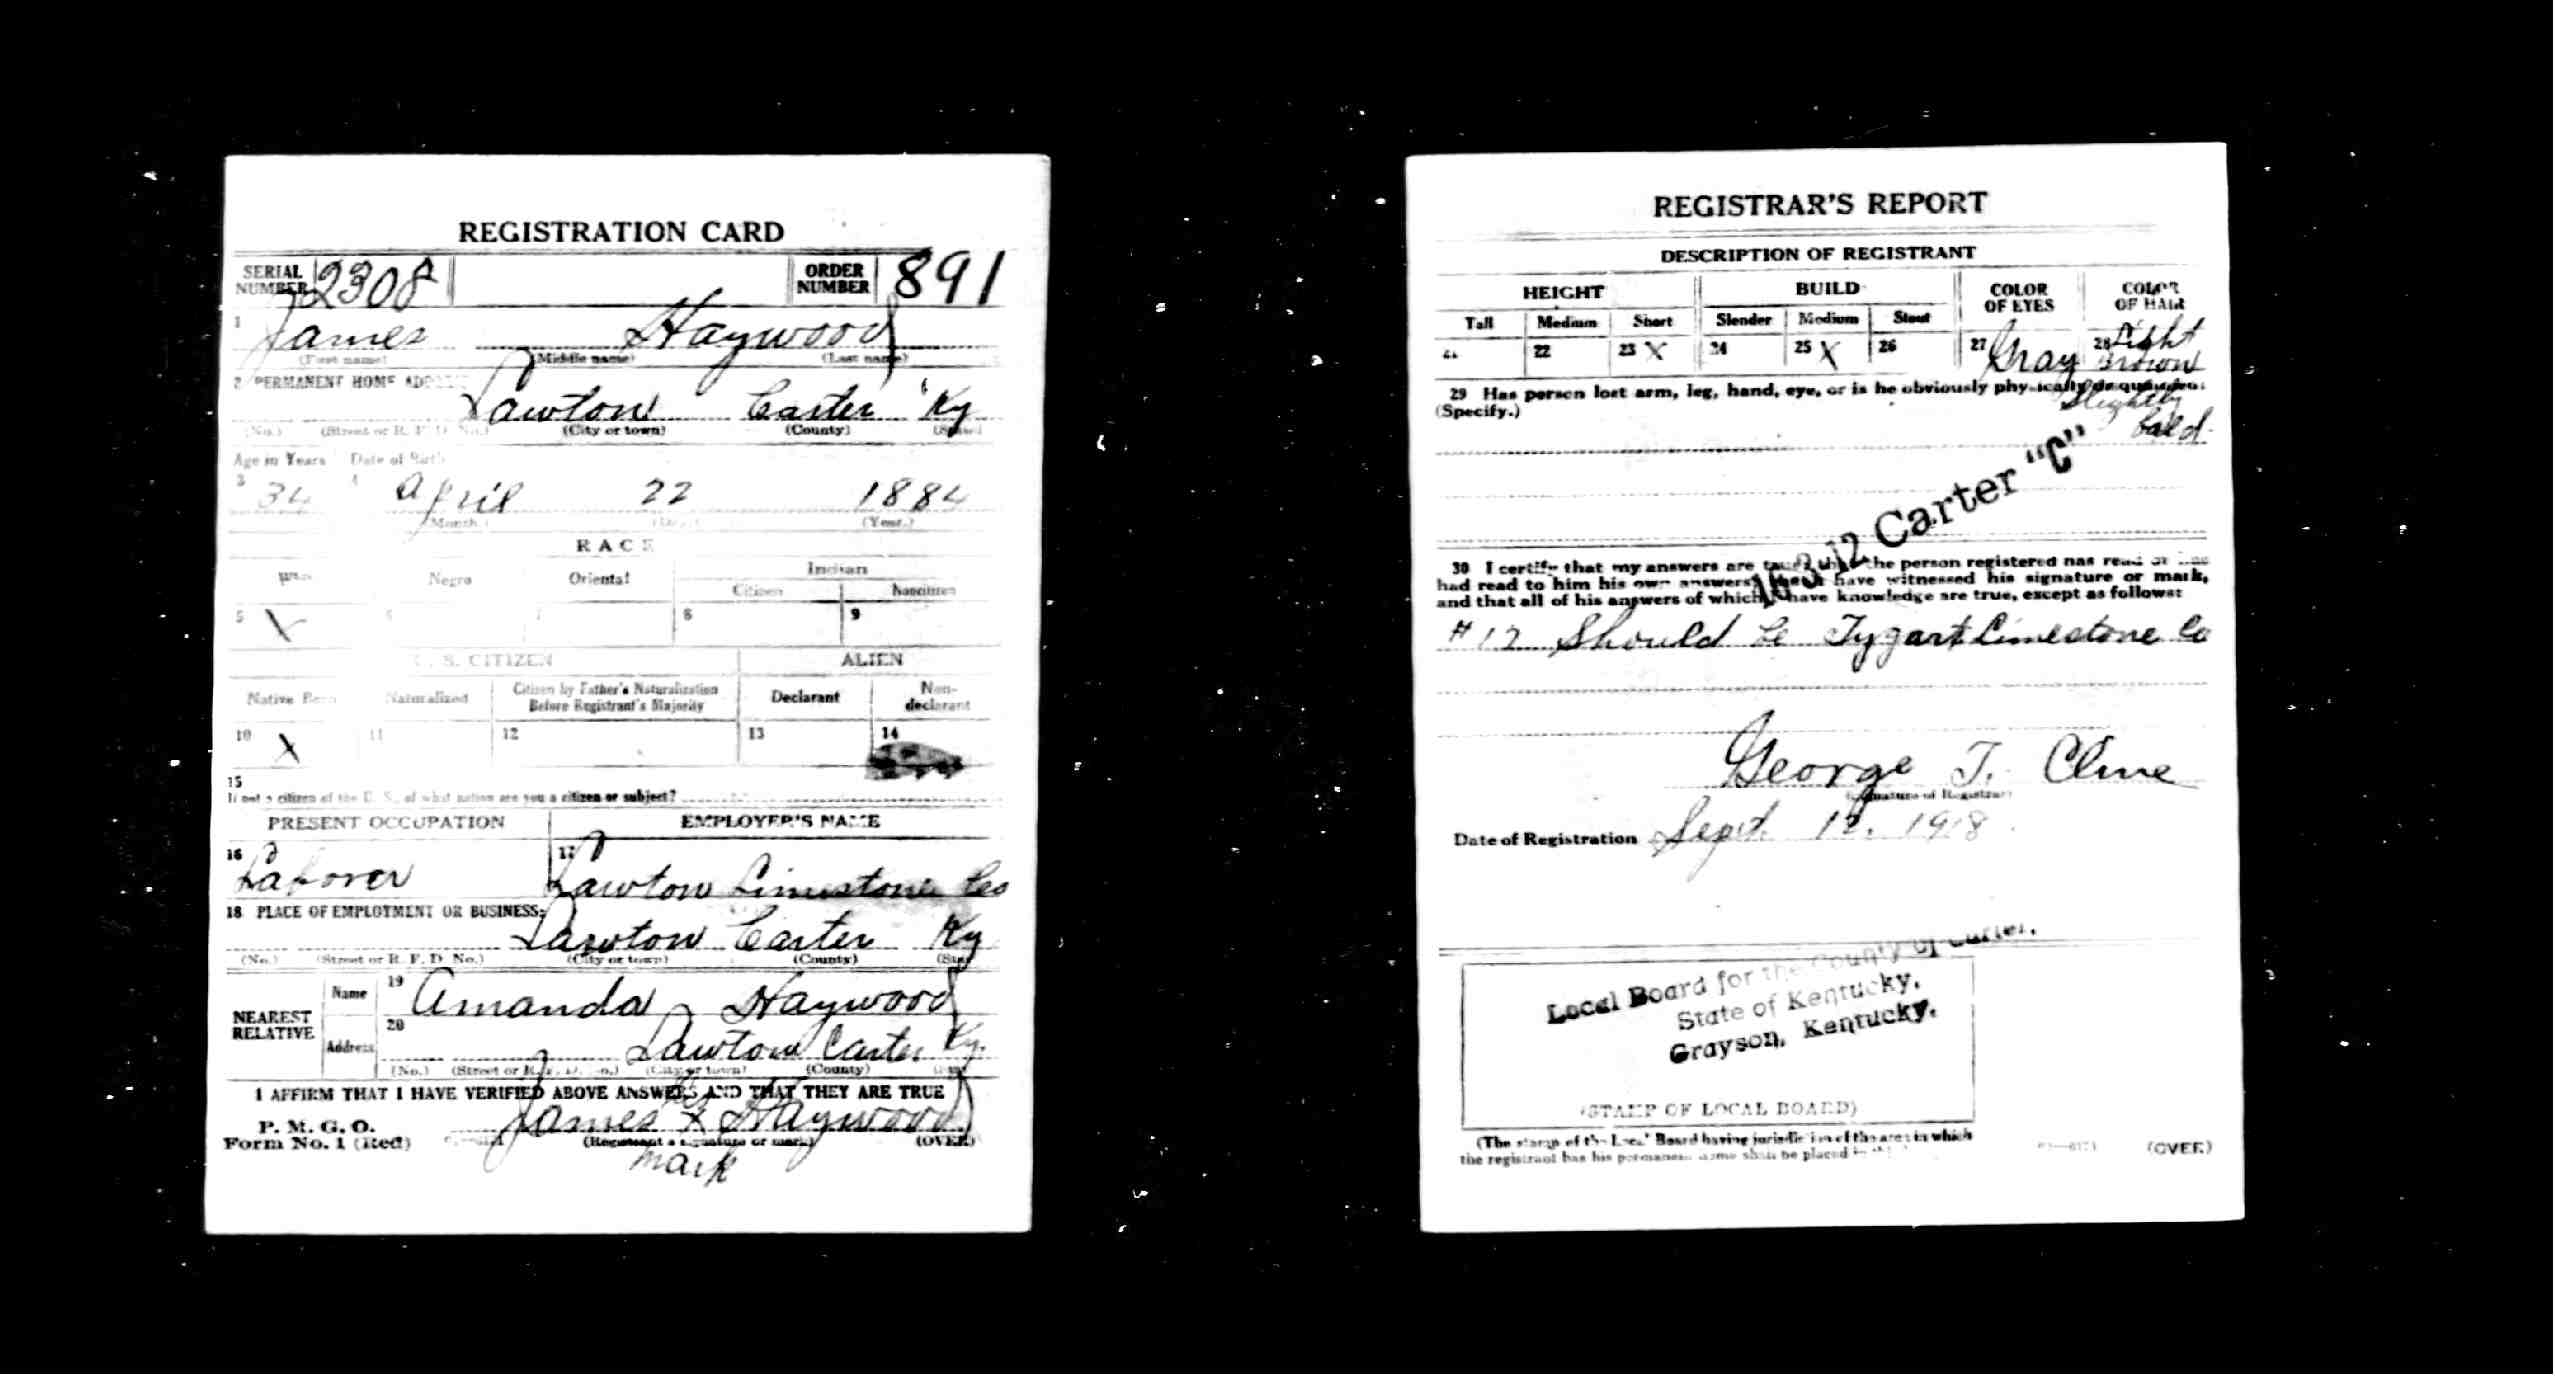 REGISTRATION CARD
SERIAL NUMBER 2308 ORDER NUMBER 891
1 James Haywood
(First name) (Middle name) (Last name)
2 PERMANENT HOME
Lawton Carter Ky
(No.) (Street or R. F. D. No.) (City or town) (County)
Age in Years Date of Birth
3 34 4 April 22 1884
(Month.) (Year.)
RACE
Negro Oriental Indian
Citizen Noncitizen
5 X 7 8 9
U. S. CITIZEN ALIEN
Native Born Naturalized Citizen by Father's Naturalization Before Registrant's Majority Declarant Non-declarant
10 X 11 12 13 14
15
If not a citizen of the U. S., of what nation are you a citizen or subject?
PRESENT OCCUPATION EMPLOYER'S NAME
16 Laborer 17 Lawton Limestone Co
18 PLACE OF EMPLOYMENT OR BUSINESS:
Lawton Carter Ky
(No.) (Street or R. F. D. No.) (City or town) (County) (State)
NEAREST RELATIVE Name 19 Amanda Haywood
Address 20 Lawton Carter Ky.
(No.) (Street or R. F. D. No.) (City or town) (County)
I AFFIRM THAT I HAVE VERIFIED ABOVE ANSWERS AND THAT THEY ARE TRUE
P. M. G. O.
Form No. 1 (Red) James X Haywood
(Registrant's signature or mark) (OVER)
mark
REGISTRAR'S REPORT
DESCRIPTION OF REGISTRANT
HEIGHT BUILD COLOR OF EYES COLOR OF HAIR
Tall Medium Short Slender Medium Stout
21 22 23 X 24 25 X 26 27 Gray 28 Light Brown
29 Has person lost arm, leg, hand, eye, or is he obviously physically disqualified?
(Specify.) Slightly
bald
16-3-12 Carter "C"
30 I certify that my answers are true; that the person registered has read or has
had read to him his own answers; that I have witnessed his signature or mark,
and that all of his answers of which I have knowledge are true, except as follows:
#17 Should be Tygart Limestone Co
George T. Cline
(Signature of Registrar)
Date of Registration Sept. 12. 1918
Local Board for the County of Carter,
State of Kentucky,
Grayson, Kentucky.
(STAMP OF LOCAL BOARD)
(The stamp of the Local Board having jurisdiction of the area in which
the registrant has his permanent home shall be placed in
(OVER)